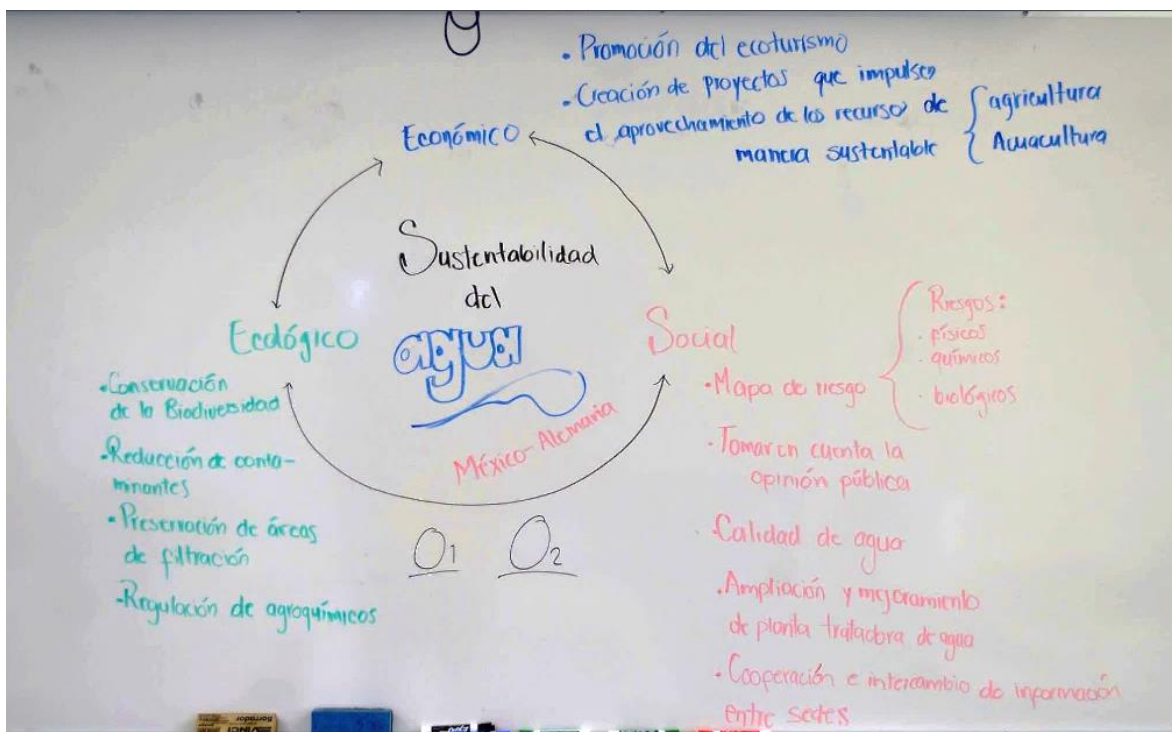 • Promoción del ecoturismo
• Creación de proyectos que impulsen
el aprovechamiento de los recursos de
manera sustentable
agricultura
Acuacultura
Económico
Sustentabilidad
del
agua
México-Alemania
Ecológico
•Conservación
de la Biodiversidad
•Reducción de conta-
minantes
•Preservación de áreas
de filtración
•Regulación de agroquímicos
O1 O2
Social
•Mapa de riesgo
Riesgos:
· físicos
· químicos
· biológicos
•Tomar en cuenta la
opinión pública
•Calidad de agua
•Ampliación y mejoramiento
de planta tratadora de agua
•Cooperación e intercambio de información
entre sedes
Borrador